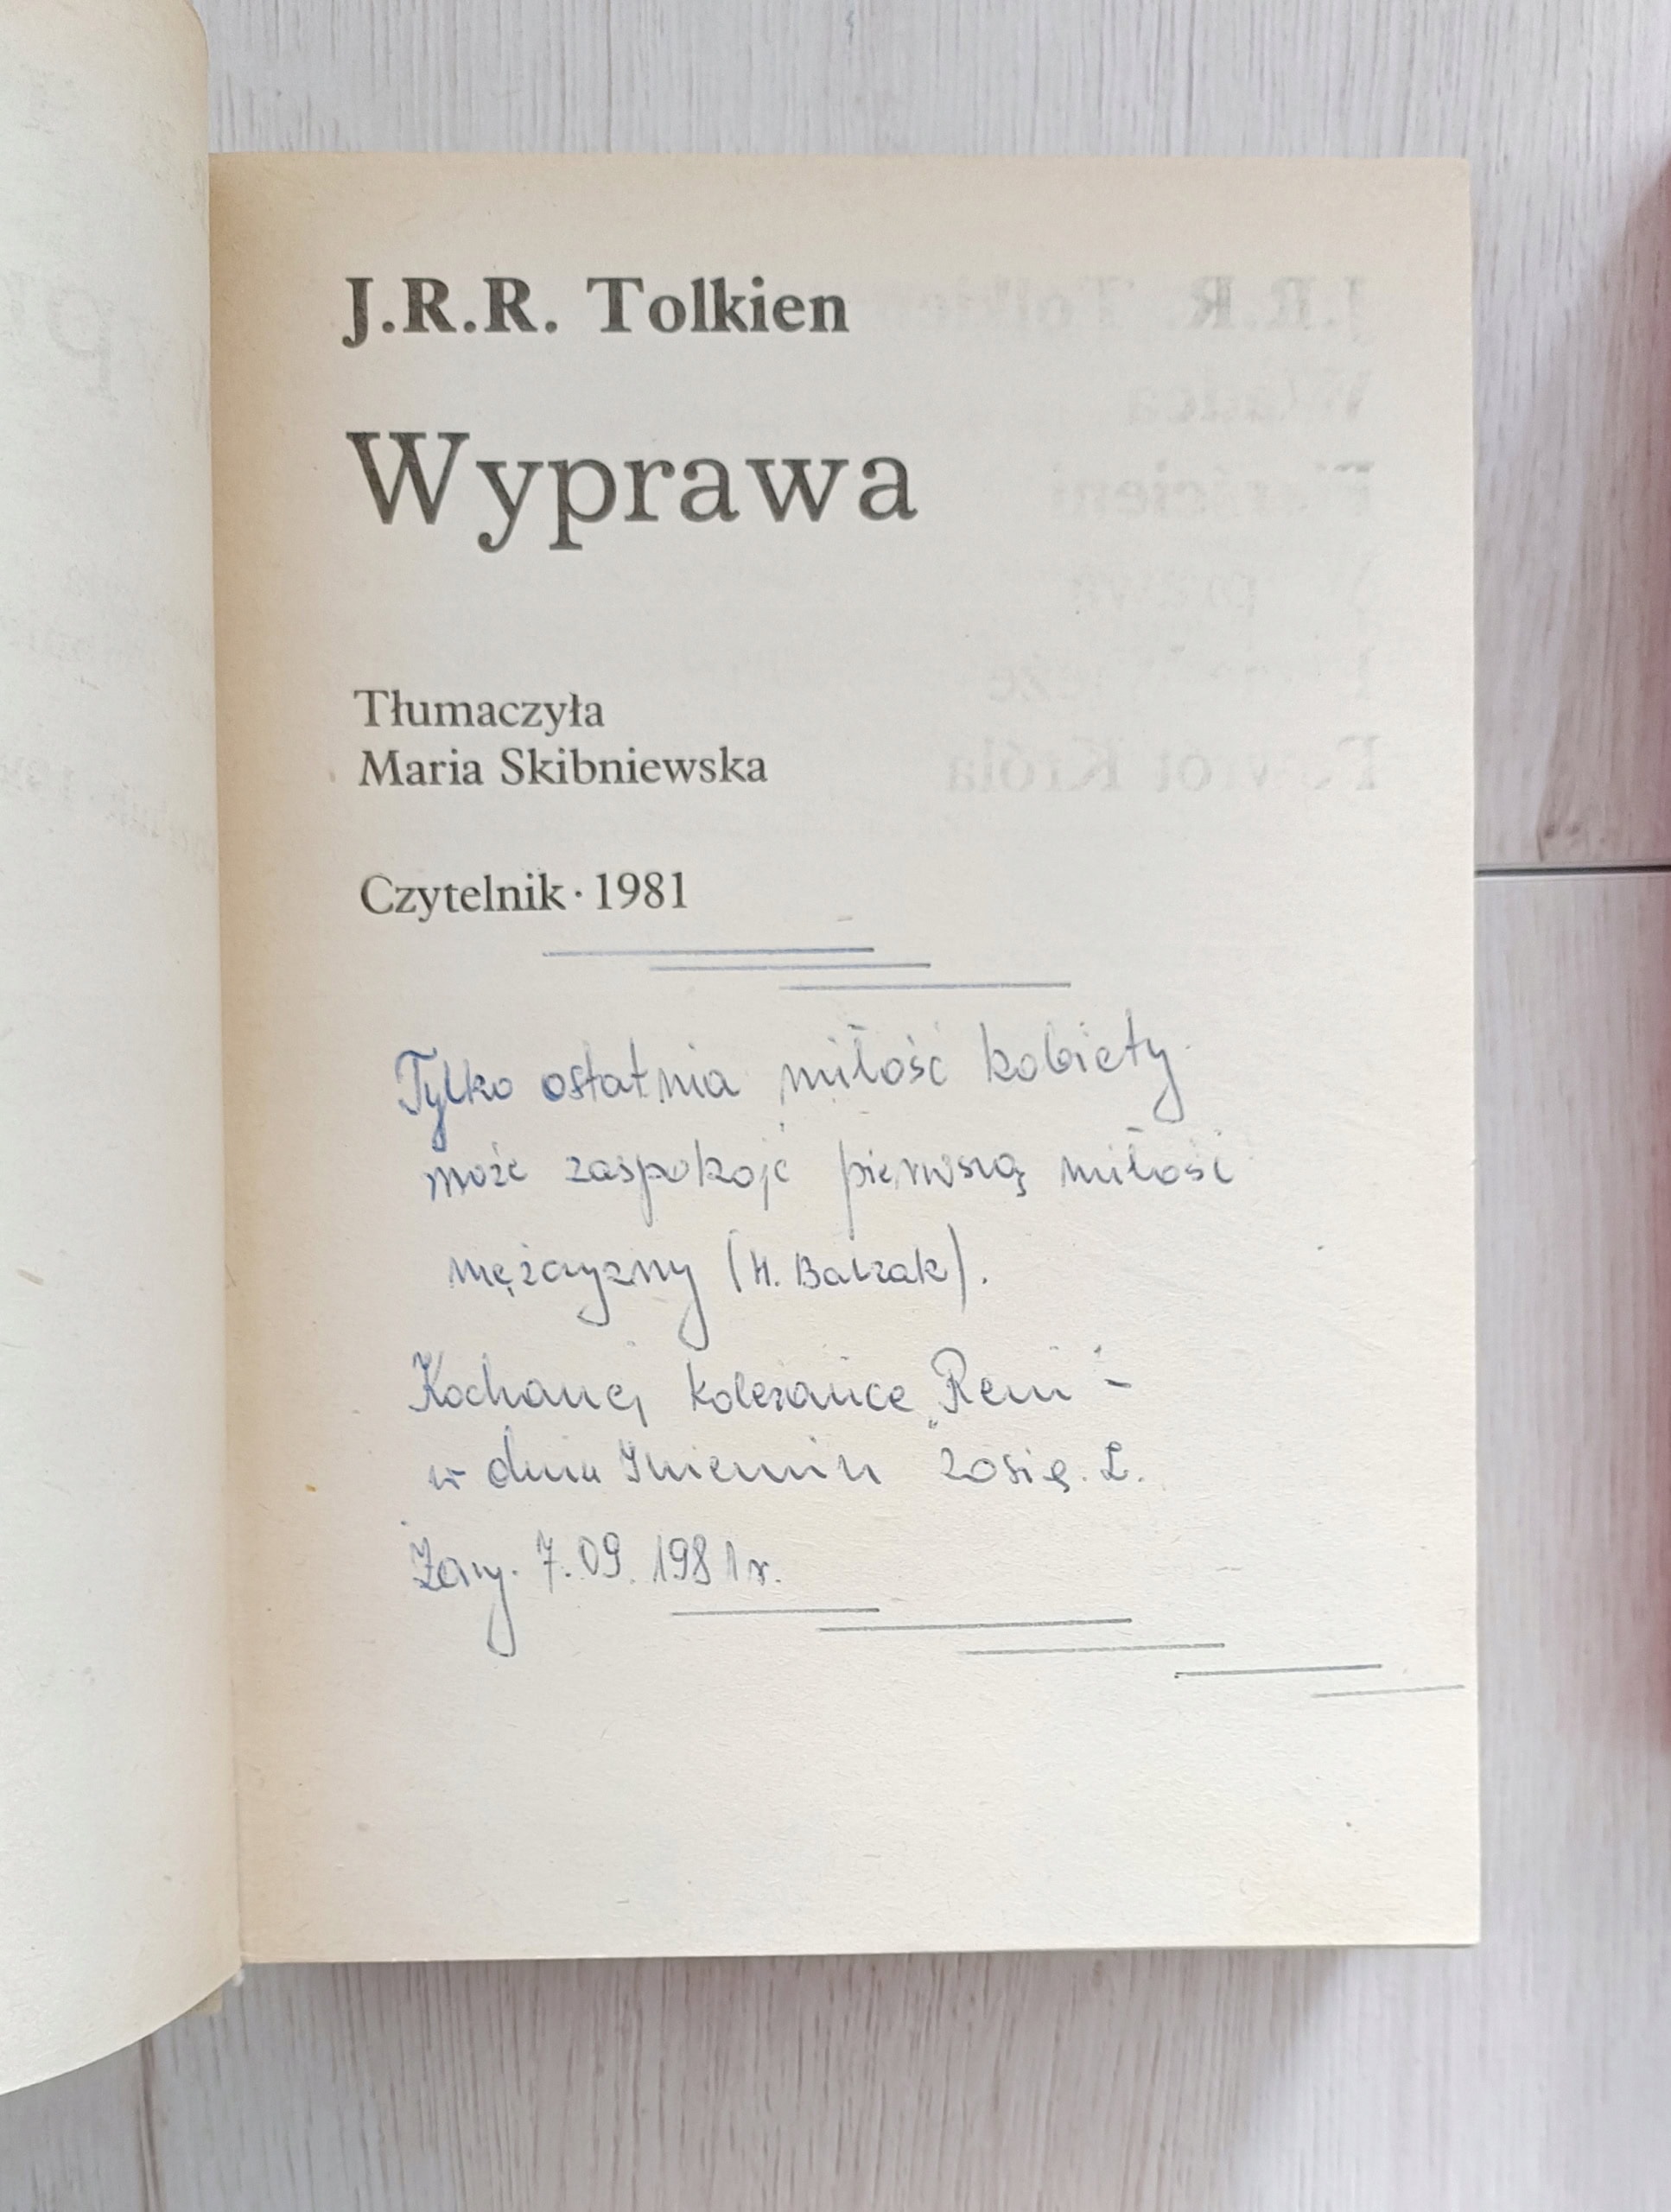 J.R.R. Tolkien
Wyprawa
Tłumaczyła
Maria Skibniewska
Czytelnik · 1981
Tylko ostatnia miłość kobiety
może zaspokoić pierwszą miłość
mężczyzny (H. Balzak).
Kochanej koleżance „Reni" -
w dniu Imienin Zosia. L.
Żary. 7.09.1981r.